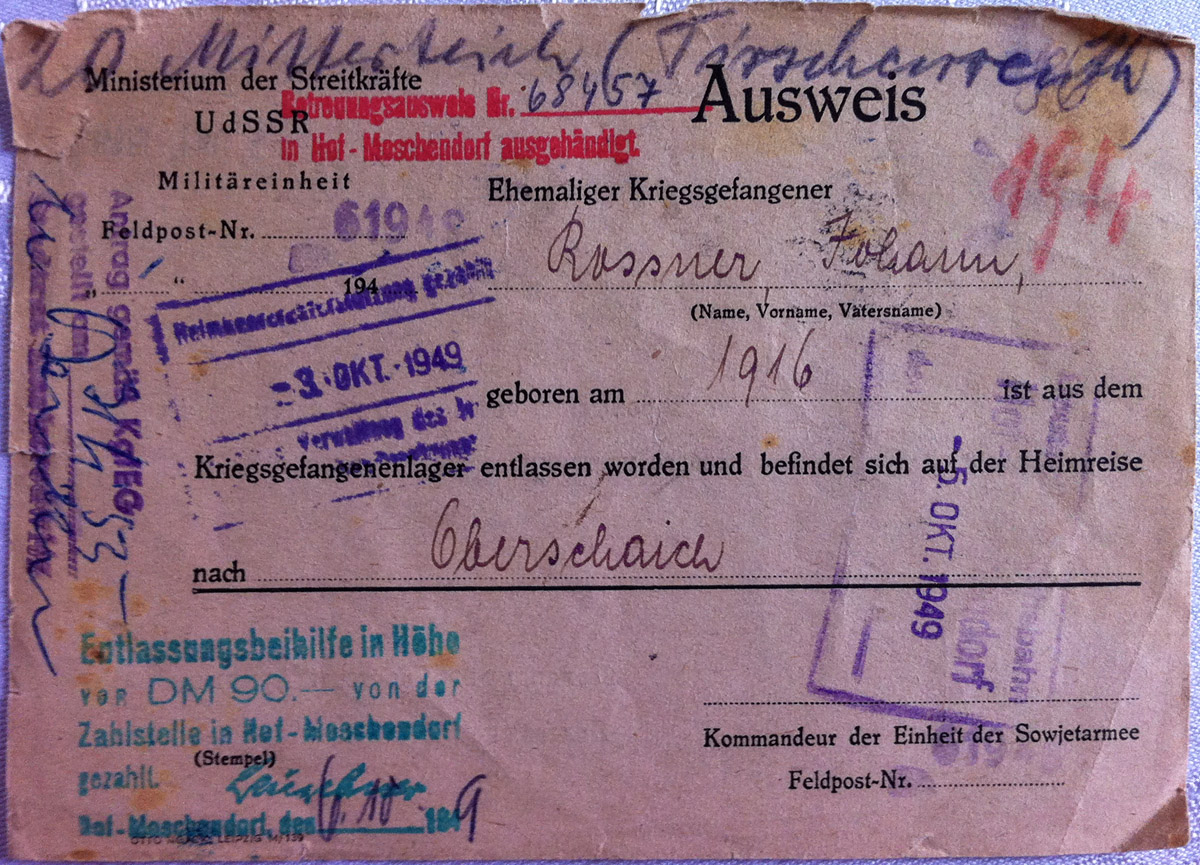 20 Mitterteich (Tirschenreuth)
Ministerium der Streitkräfte
UdSSR
Betreuungsausweis Nr. 68457
in Hof-Moschendorf ausgehändigt.
Ausweis
Militäreinheit
Ehemaliger Kriegsgefangener
Feldpost-Nr.
„ “ 194
Rossner, Johann,
(Name, Vorname, Vatersname)
gezahlt
-3. OKT. 1949
Verwaltung des
geboren am 1916 ist aus dem
Kriegsgefangenenlager entlassen worden und befindet sich auf der Heimreise
nach Oberschaich
Antrag gemäß KgfEG
gestellt am
-5. OKT. 1949
Entlassungsbeihilfe in Höhe
von DM 90.— von der
Zahlstelle in Hof-Moschendorf
(Stempel)
gezahlt.
Hof-Moschendorf, den 6.10 1949
Kommandeur der Einheit der Sowjetarmee
Feldpost-Nr.